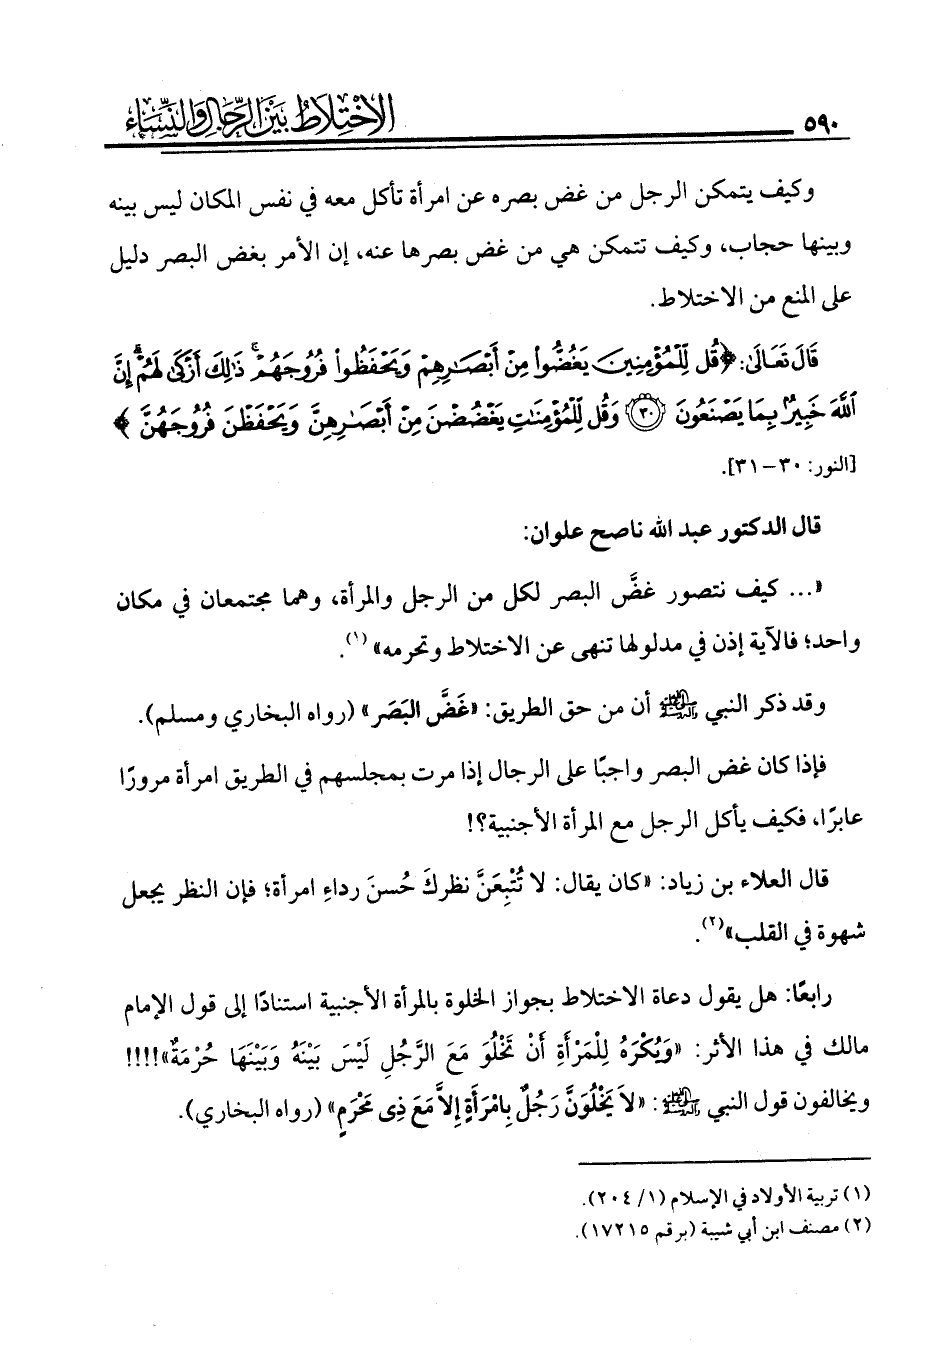 ٥٩٠
الاختلاط بين الرجال والنساء
وكيف يتمكن الرجل من غض بصره عن امرأة تأكل معه في نفس المكان ليس بينه
وبينها حجاب، وكيف تتمكن هي من غض بصرها عنه، إن الأمر بغض البصر دليل
على المنع من الاختلاط.
قَالَ تَعَالَىٰ: ﴿قُل لِّلْمُؤْمِنِينَ يَغُضُّواْ مِنْ أَبْصَـٰرِهِمْ وَيَحْفَظُواْ فُرُوجَهُمْ ۚ ذَٰلِكَ أَزْكَىٰ لَهُمْ ۗ إِنَّ
ٱللَّهَ خَبِيرٌۢ بِمَا يَصْنَعُونَ ﴿٣٠﴾ وَقُل لِّلْمُؤْمِنَـٰتِ يَغْضُضْنَ مِنْ أَبْصَـٰرِهِنَّ وَيَحْفَظْنَ فُرُوجَهُنَّ﴾
[النور: ٣٠ – ٣١].
قال الدكتور عبد الله ناصح علوان:
«... كيف نتصور غضَّ البصر لكل من الرجل والمرأة، وهما مجتمعان في مكان
واحد؛ فالآية إذن في مدلولها تنهى عن الاختلاط وتحرمه» (١).
وقد ذكر النبي ﷺ أن من حق الطريق: «غَضَّ البَصَر» (رواه البخاري ومسلم).
فإذا كان غض البصر واجبًا على الرجال إذا مرت بمجلسهم في الطريق امرأة مرورًا
عابرًا، فكيف يأكل الرجل مع المرأة الأجنبية؟!
قال العلاء بن زياد: «كان يقال: لا تُتْبِعَنَّ نظركَ حُسنَ رداءِ امرأة؛ فإن النظر يجعل
شهوة في القلب»(٢).
رابعًا: هل يقول دعاة الاختلاط بجواز الخلوة بالمرأة الأجنبية استنادًا إلى قول الإمام
مالك في هذا الأثر: «وَيُكْرَهُ لِلْمَرْأَةِ أَنْ تَخْلُوَ مَعَ الرَّجُلِ لَيْسَ بَيْنَهُ وَبَيْنَهَا حُرْمَةٌ»!!!!
ويخالفون قول النبي ﷺ: «لاَ يَخْلُوَنَّ رَجُلٌ بِامْرَأَةٍ إِلاَّ مَعَ ذِى مَحْرَمٍ» (رواه البخاري).
(١) تربية الأولاد في الإسلام (١/ ٢٠٤).
(٢) مصنف ابن أبي شيبة (برقم ١٧٢١٥).